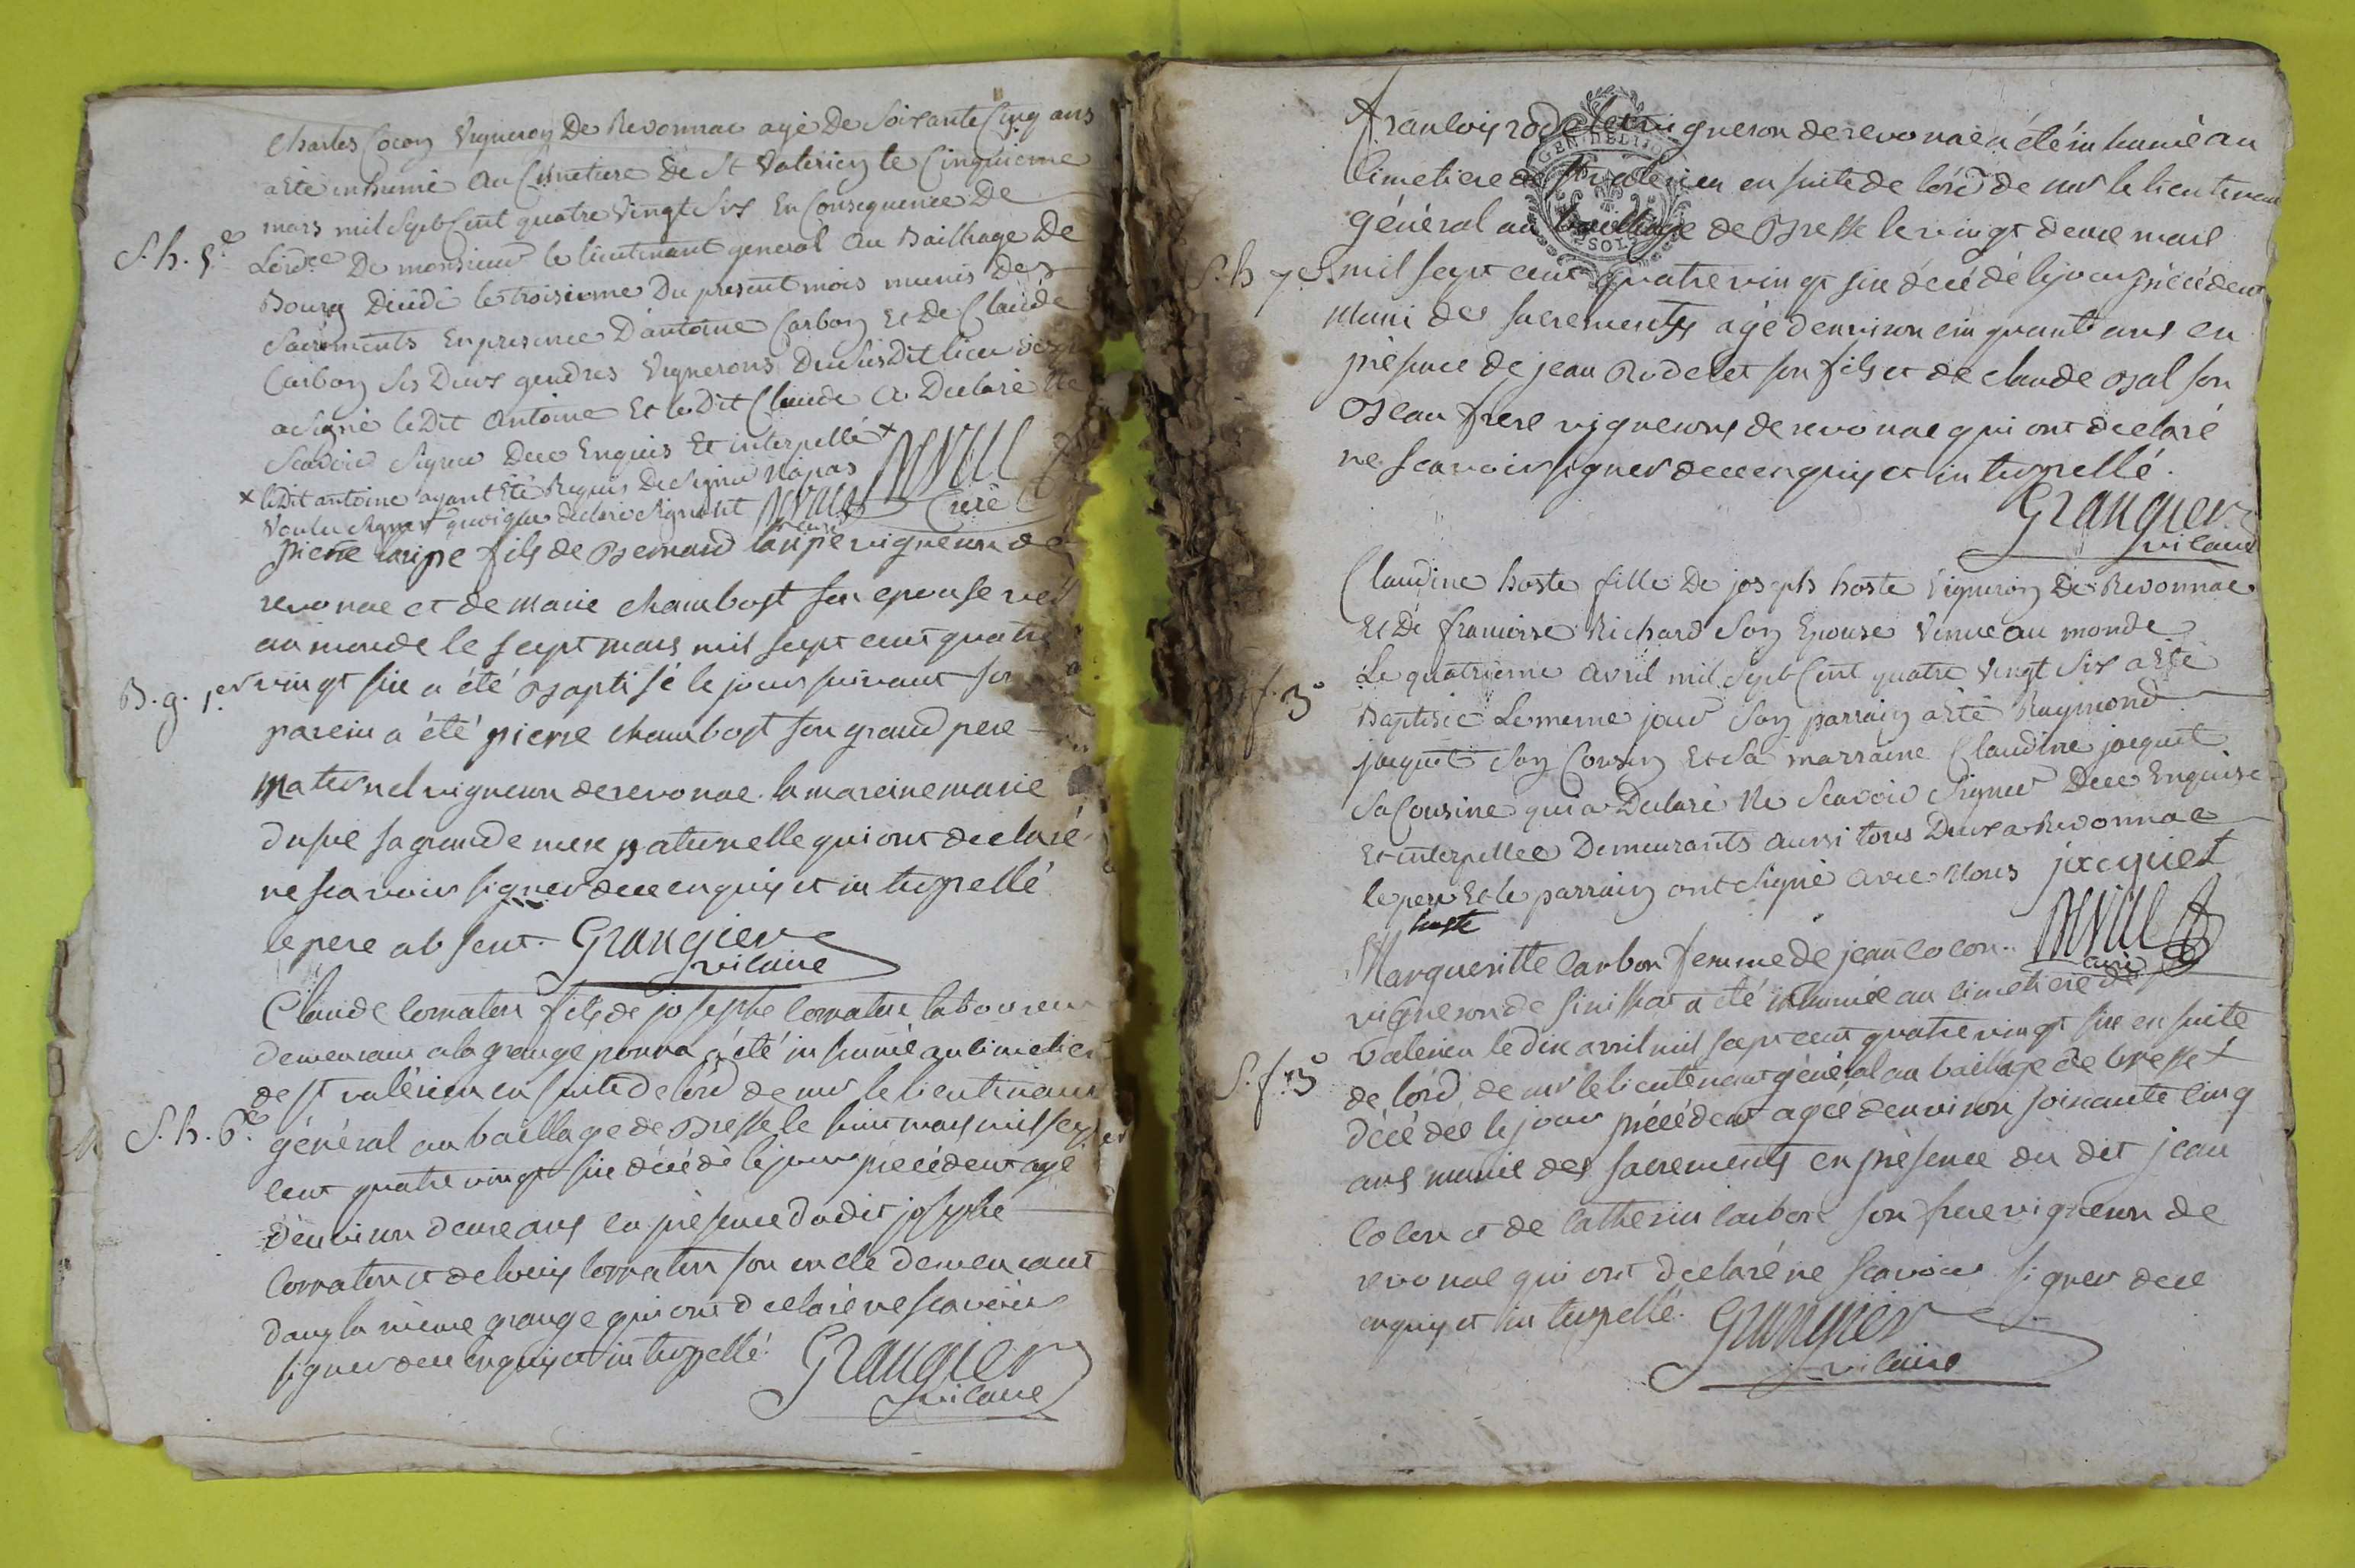 Charles Cocon Vigneron De Revonnac agé De Soixante Cinq ans
a été inhumé Au Cimetiere De St Valerien le Cinquieme
mars mil Sept Cent quatre Vingt Six En Consequence De
S. h. 5.e Lord.ce De monsieur le lieutenant general Au Bailliage De
Bourg Décédé le troisieme Du present mois munis des
Sacrements En presence D'antoine Carbon Et De Claude
Carbon Ses Deux gendres Vignerons Dudit Susdit lieu
a Signé le Dit Antoine Et le Dit Claude a Declaré Ne
Scavoir Signer Dece Enquis Et interpellé x
x le Dit antoine ayant Eté Requis De Signer N'a pas
Voulu Signer quoiqu'il declare signant Curé
pierre laripe fils de Bernard laripe vigneron de
revonac et de marie chambost son epouse
au monde le sept mars mil sept cent quatre
B. g. 1.er vingt six a été baptisé le jour suivant son
parein a été pierre chambost son grand pere
maternel vigneron de revonac la mareine marie
sa grande mere paternelle qui ont declaré
ne scavoir signer dece enquis et interpellé
le pere absent. Grangier
vicaire
Claude cornaton fils de josephe cornaton laboureur
demeurant a la grange ponna a été inhumé au cimetiere
de st valérien en suite de lord de mr le lieutenant
S. h. 6.e général au baillage de Bresse le huit mars mil sept
cent quatre vingt six décédé le jour precédent agé
denviron deux ans en présence dudit josephe
cornaton et de louis cornaton son oncle demeurant
dans la même grange qui ont declaré ne scavoir
signer dece enquis et interpellé. Grangier
vicaire
francois rodelet vigneron de revonac a été inhumé au
Cimetiere de st valerien en suite de lord de mr le lieutenant
GEN. DE LIION
général au bailliage de Bresse le vingt deux mars
S. h 7.e mil sept cent quatre vingt six décédé le jour précédent
muni des sacrements agé denviron cinquante ans en
présence de jean Rodelet son fils et de claude bal son
Beau frere vignerons de revonac qui ont declaré
ne scavoir signer dece enquis et interpellé.
Grangier
vicaire
Claudine hoste fille De joseph hoste Vigneron De Revonnac
Et De francoise Richard Son Epouse Venue au monde
Le quatrieme avril mil Sept Cent quatre Vingt Six a Eté
f. 3° Baptisée Le meme jour Son parrain a Eté Raymond
jacquet Son Cousin Et Sa marraine Claudine jacquet
Sa Cousine qui a Declaré Ne Scavoir Signer Dece Enquise
Et interpellée Demeurants aussi tous Deux a Revonnac
le pere Et le parrain ont signé avec Nous jacquet
hoste
curé
Margueritte Carbon femme de jean cocon
vigneron de a été inhumée au cimetiere de st
valerien le dix avril mil sept cent quatre vingt six en suite
S. f. 3° de lord. de mr le lieutenant général au bailliage de bresse x
décédée le jour précédent agée denviron soixante cinq
ans munie des sacrements en présence du dit jean
cocon et de catherin carbon son frere vigneron de
revonac qui ont declaré ne scavoir signer dece
enquis et interpellé. Grangier
vicaire